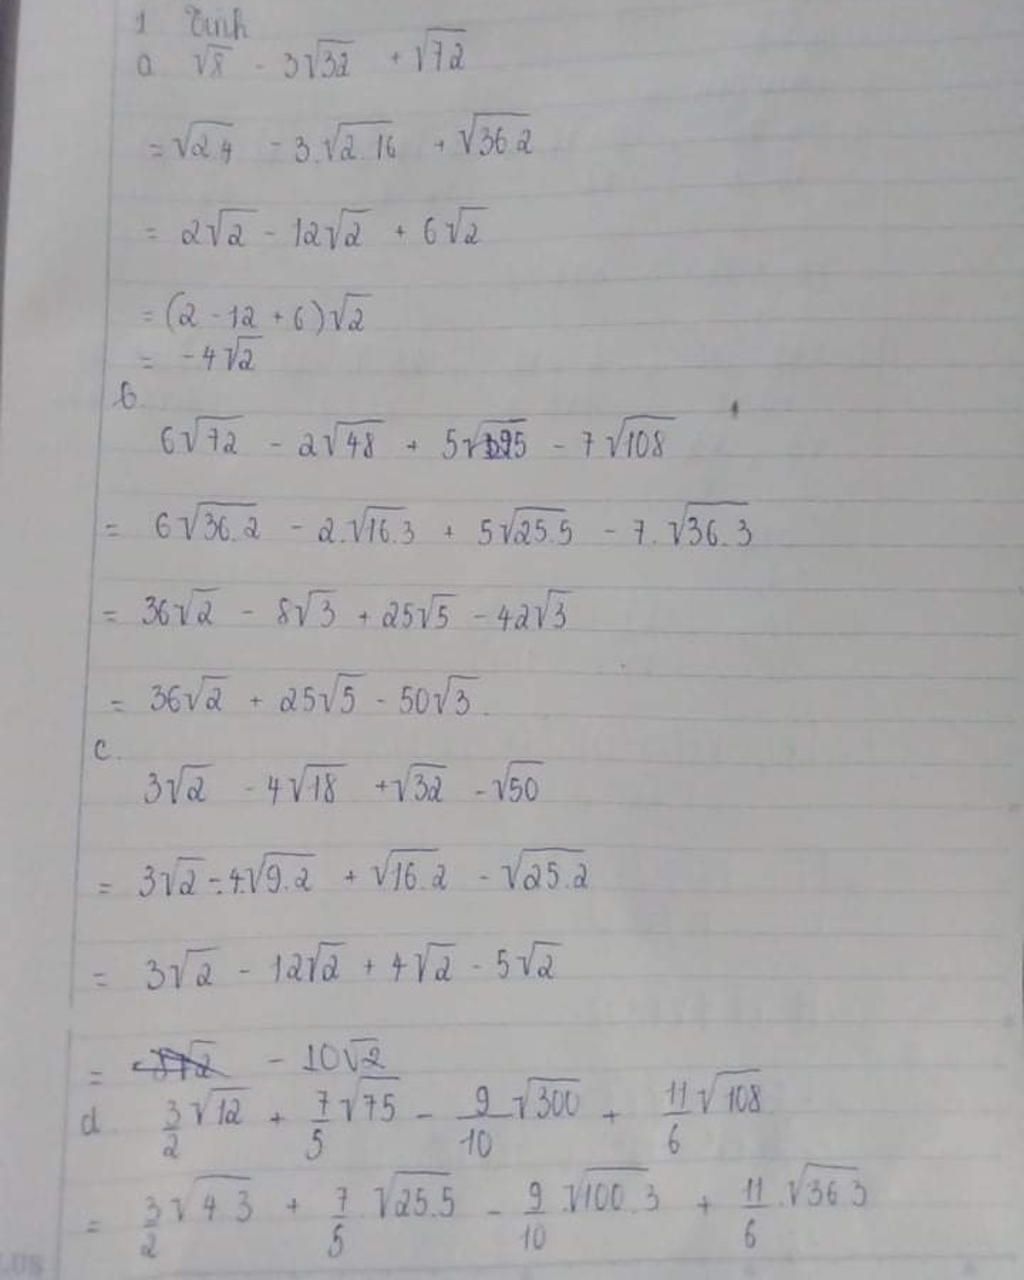 1 Tính
a √8 - 3√32 + √72
= √2.4 - 3.√2.16 + √36.2
= 2√2 - 12√2 + 6√2
= (2 - 12 + 6)√2
= -4√2
b.
6√72 - 2√48 + 5√125 - 7√108
= 6√36.2 - 2.√16.3 + 5√25.5 - 7.√36.3
= 36√2 - 8√3 + 25√5 - 42√3
= 36√2 + 25√5 - 50√3.
c.
3√2 - 4√18 + √32 - √50
= 3√2 - 4.√9.2 + √16.2 - √25.2
= 3√2 - 12√2 + 4√2 - 5√2
= - 10√2
d. 3/2 √12 + 7/5 √75 - 9/10 √300 + 11/6 √108
= 3/2 √4.3 + 7/5 .√25.5 - 9/10 .√100.3 + 11/6 .√36.3